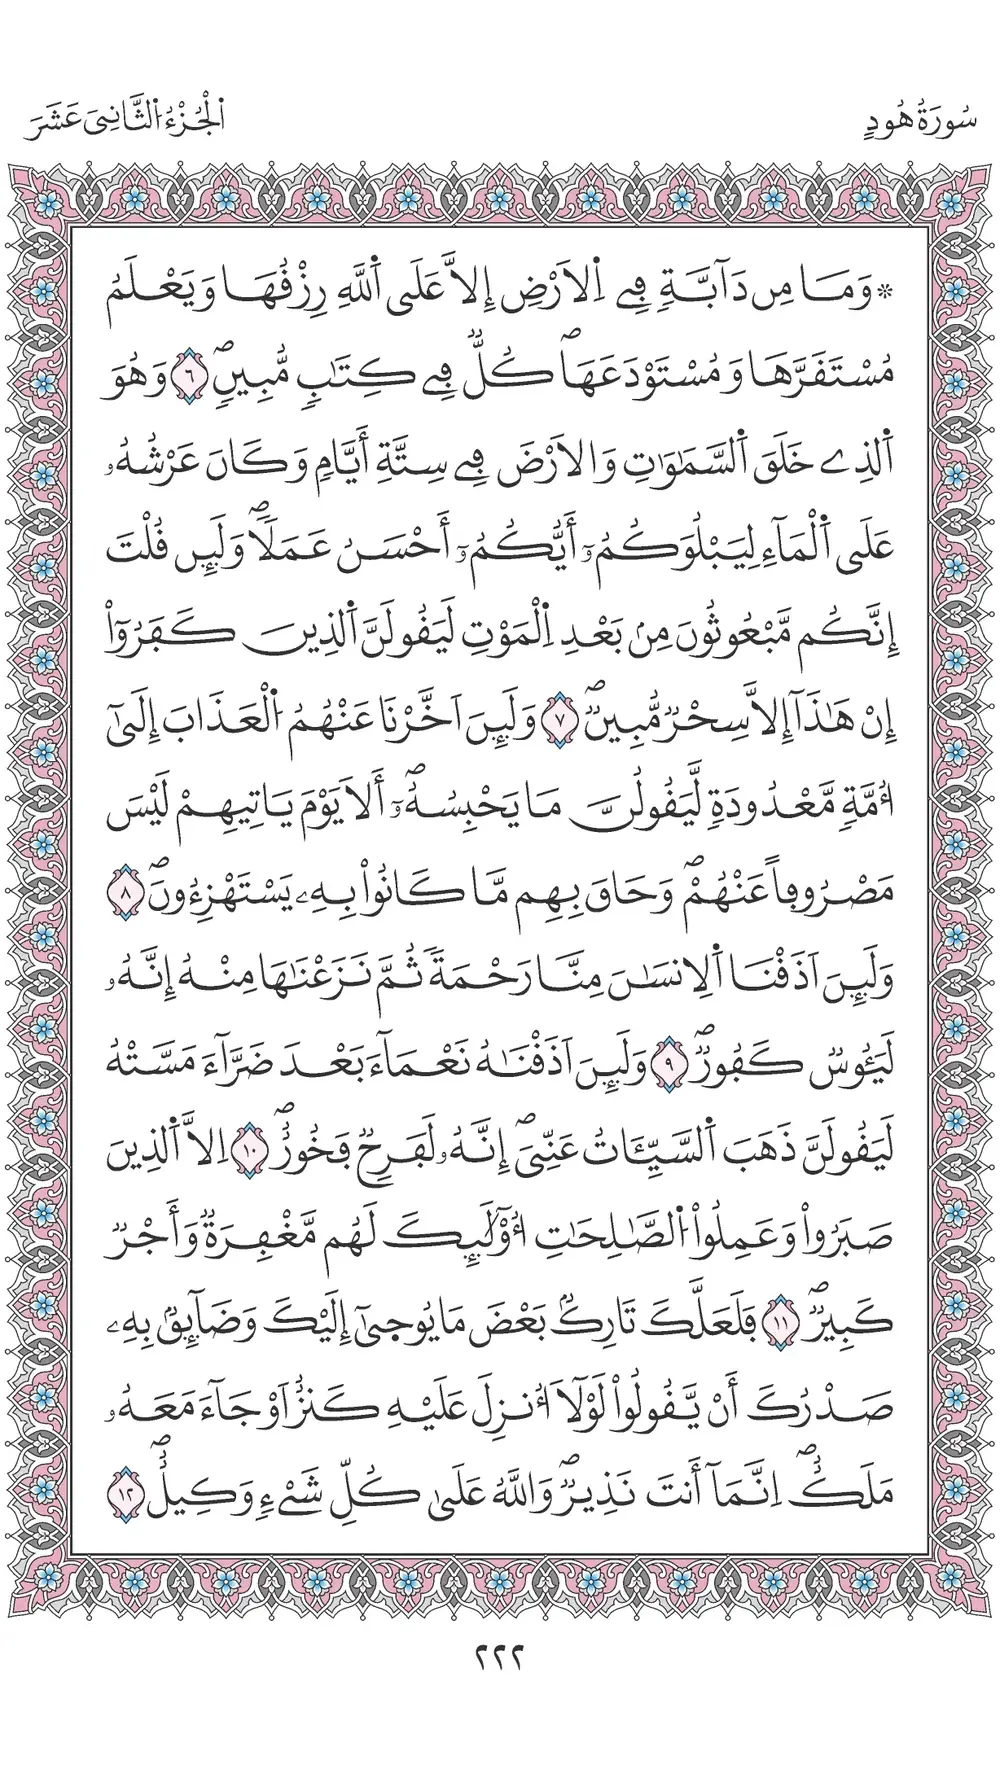 سُورَةُ هُودٍ
اَ۬لْجُزْءُ اُ۬لثَّانِيَ عَشَرَ
۞ وَمَا مِن دَآبَّةٖ فِے اِ۬لَارْضِ إِلَّا عَلَى اَ۬للَّهِ رِزْقُهَا وَيَعْلَمُ
مُسْتَقَرَّهَا وَمُسْتَوْدَعَهَاۖ كُلّٞ فِے كِتَٰبٖ مُّبِينٖۖ ٦ وَهُوَ
اَ۬لذِے خَلَقَ اَ۬لسَّمَٰوَٰتِ وَالَارْضَ فِے سِتَّةِ أَيَّامٖ وَكَانَ عَرْشُهُۥ
عَلَى اَ۬لْمَآءِ لِيَبْلُوَكُمُۥٓ أَيُّكُمُۥٓ أَحْسَنُ عَمَلاٗۖ وَلَئِن قُلْتَ
إِنَّكُم مَّبْعُوثُونَ مِنۢ بَعْدِ اِ۬لْمَوْتِ لَيَقُولَنَّ اَ۬لذِينَ كَفَرُوٓاْ
إِنْ هَٰذَآ إِلَّا سِحْرٞ مُّبِينٞۖ ٧ وَلَئِنَ اَخَّرْنَا عَنْهُمُ اُ۬لْعَذَابَ إِلَىٰٓ
أُمَّةٖ مَّعْدُودَةٖ لَّيَقُولُنَّ مَا يَحْبِسُهُۥٓۖ أَلَا يَوْمَ يَاتِيهِمْ لَيْسَ
مَصْرُوفاً عَنْهُمْۖ وَحَاقَ بِهِم مَّا كَانُواْ بِهِۦ يَسْتَهْزِءُونَۖ ٨
وَلَئِنَ اَذَقْنَا اَ۬لِانسَٰنَ مِنَّا رَحْمَةٗ ثُمَّ نَزَعْنَٰهَا مِنْهُ إِنَّهُۥ
لَيَـُٔوسٞ كَفُورٞۖ ٩ وَلَئِنَ اَذَقْنَٰهُ نَعْمَآءَ بَعْدَ ضَرَّآءَ مَسَّتْهُ
لَيَقُولَنَّ ذَهَبَ اَ۬لسَّيِّـَٔاتُ عَنِّيَۖ إِنَّهُۥ لَفَرِحٞ فَخُورٌۖ ١٠ اِلَّا اَ۬لذِينَ
صَبَرُواْ وَعَمِلُواْ اُ۬لصَّٰلِحَٰتِ أُوْلَٰٓئِكَ لَهُم مَّغْفِرَةٞ وَأَجْرٞ
كَبِيرٞۖ ١١ فَلَعَلَّكَ تَارِكُۢ بَعْضَ مَا يُوحَىٰٓ إِلَيْكَ وَضَآئِقُۢ بِهِۦ
صَدْرُكَ أَنْ يَّقُولُواْ لَوْلَآ أُنزِلَ عَلَيْهِ كَنزٌ اَوْ جَآءَ مَعَهُۥ
مَلَكٌۖ اِنَّمَآ أَنتَ نَذِيرٞۖ وَاللَّهُ عَلَىٰ كُلِّ شَےْءٖ وَكِيلٌۖ ١٢
٢٢٢